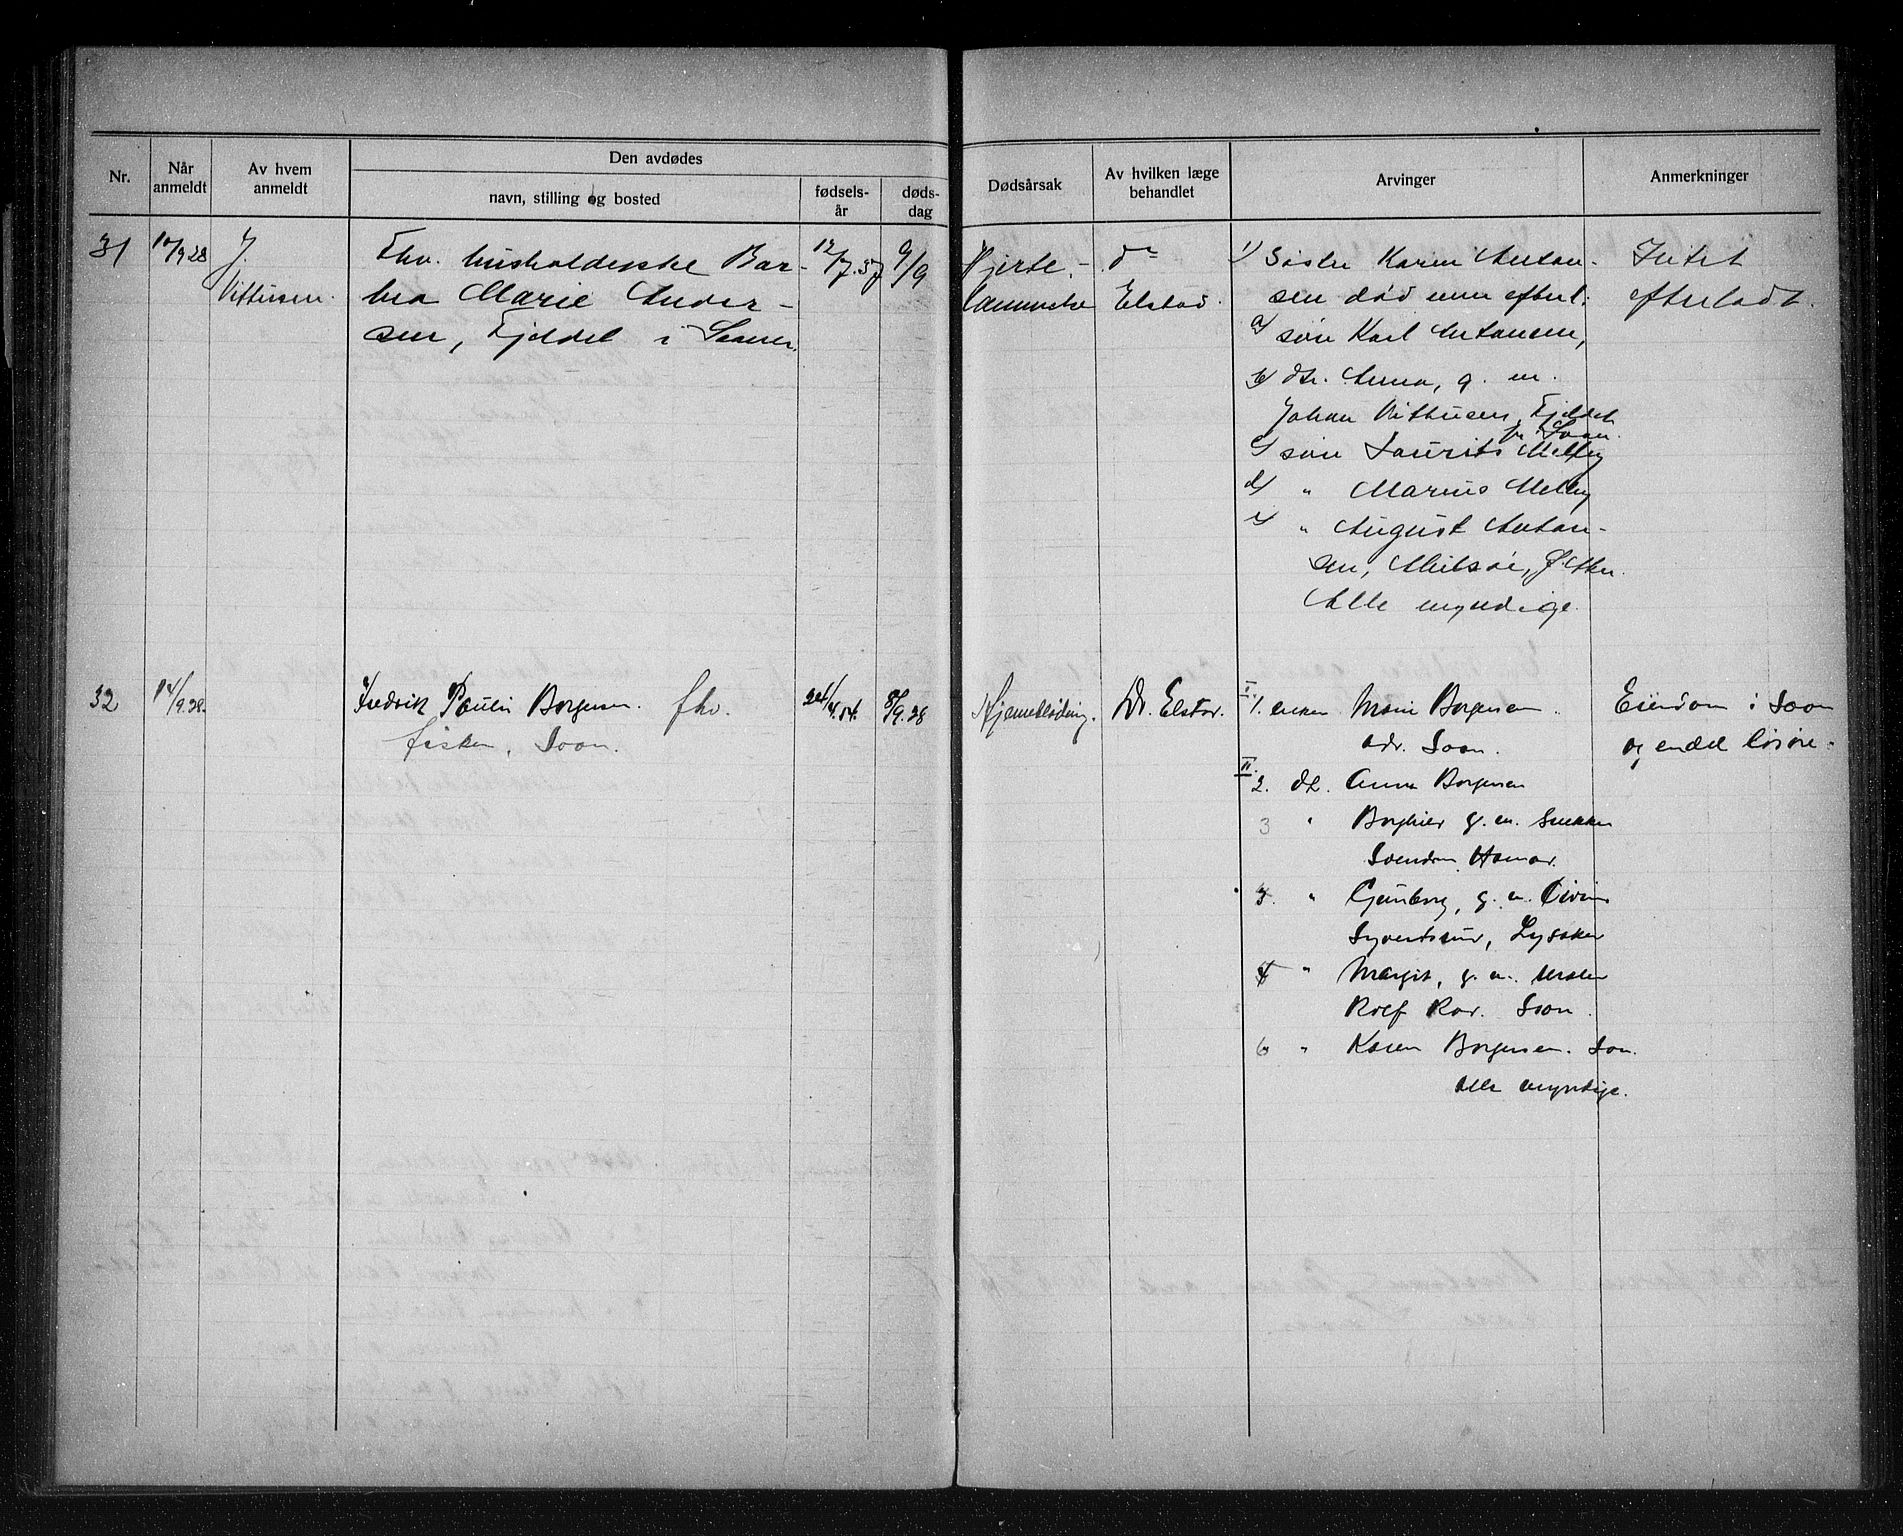 Nr.
Når anmeldt
Av hvem anmeldt
Den avdødes
navn, stilling og bosted
fødsels-år
døds-dag
Dødsårsak
Av hvilken læge behandlet
Arvinger
Anmerkninger
31
10/9 28
J.
Vithusen.
Fhv. husholderske Bar-
bra Marie Ander-
sen, Fjeldet i Saaner.
12/7.57
9/9
Hjerte-
lammelse
dr
Elstad.
1) Søster Karen Antan-
sen død men efterl:
a) søn Karl Antansen,
b) dtr. Anna, g. m.
Johan Vithusen, Fjeldet
pr. Soon.
c) søn Laurits Melby
d) " Marius Melby
e) " August Antan-
sen,
Alle myndige.
Intet
efterladt.
32
14/9.28.
Fredrik Paulin Borgersen. fhv.
fisker, Soon.
24/4.54.
8/9.28
Hjerneblødning.
Dr. Elstad.
I
1. enken Marie Borgersen
adr. Soon.
II.
2. dt. Anna Borgersen
3 " Borghild g. m. Snekker
Svendsen Hamar.
3. " Gunborg, g. m.
Syvertsen, Lysaker
4 " Margit, g. m. Maler
Rolf Roer. Soon.
6 " Karen Borgersen. Son.
alle myndige.
Eiendom i Soon
og endel løsøre.